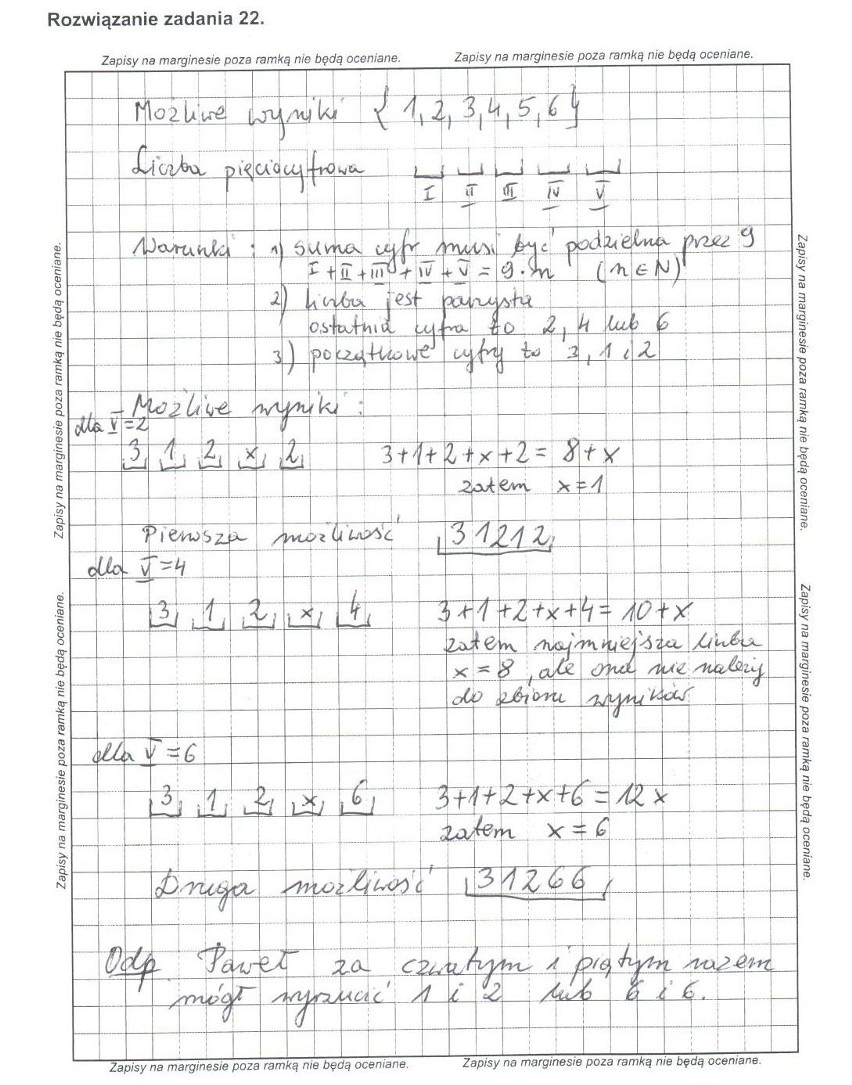 Rozwiązanie zadania 22.
Zapisy na marginesie poza ramką nie będą oceniane. Zapisy na marginesie poza ramką nie będą oceniane.
Możliwe wyniki { 1, 2, 3, 4, 5, 6 }
Liczba pięciocyfrowa
I II III IV V
Warunki : 1) suma cyfr musi być podzielna przez 9
I + II + III + IV + V = 9·n (n ∈ N)
2) liczba jest parzysta
ostatnia cyfra to 2, 4 lub 6
3) początkowe cyfry to 3, 1 i 2
– Możliwe wyniki :
dla V=2
3 1 2 x 2 3+1+2+x+2= 8+x
zatem x=1
Pierwsza możliwość 31212
dla V=4
3 1 2 x 4 3+1+2+x+4= 10+x
zatem najmniejsza liczba
x=8, ale ona nie należy
do zbioru wyników
dla V=6
3 1 2 x 6 3+1+2+x+6=12x
zatem x=6
Druga możliwość 31266
Odp Paweł za czwartym i piątym razem
mógł wyrzucić 1 i 2 lub 6 i 6.
Zapisy na marginesie poza ramką nie będą oceniane. Zapisy na marginesie poza ramką nie będą oceniane.
Zapisy na marginesie poza ramką nie będą oceniane. Zapisy na marginesie poza ramką nie będą oceniane.
Zapisy na marginesie poza ramką nie będą oceniane. Zapisy na marginesie poza ramką nie będą oceniane.